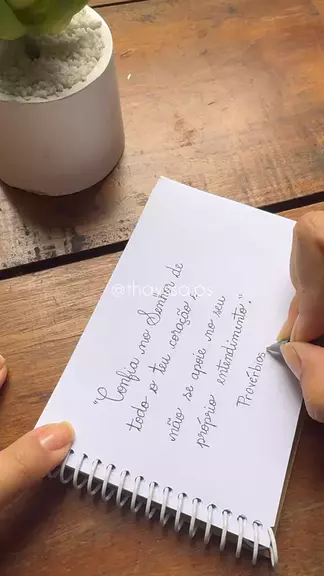 "Confia no Senhor de
todo o teu coração e
não se apoie no seu
próprio entendimento."
Provérbios
@thaysa.ps